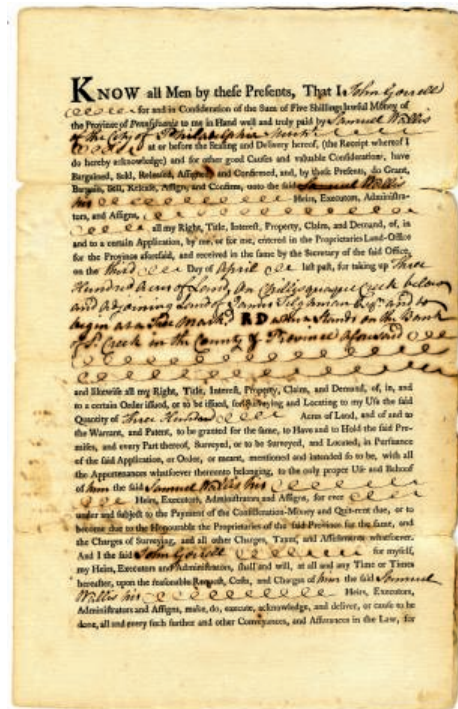 KNOW all Men by theſe Preſents, That I John Gorrell
for and in Conſideration of the Sum of Five Shillings lawful Money of
the Province of Penſylvania to me in Hand well and truly paid by Samuel Wallis
of the City of Philadelphia
at or before the Sealing and Delivery hereof, (the Receipt whereof I
do hereby acknowledge) and for other good Cauſes and valuable Conſiderations, have
Bargained, Sold, Releaſed, Aſſigned and Confirmed, and, by theſe Preſents, do Grant,
Bargain, Sell, Releaſe, Aſſign, and Confirm, unto the ſaid Samuel Wallis
his Heirs, Executors, Adminiſtra-
tors, and Aſſigns,
all my Right, Title, Intereſt, Property, Claim, and Demand, of, in
and to a certain Application, by me, or for me, entered in the Proprietaries Land-Office
for the Province aforeſaid, and received in the ſame by the Secretary of the ſaid Office,
on the third Day of April laſt paſt, for taking up Three
Hundred Acres of Land, on Chilisquaque Creek below
and adjoining Land of James Tilghman Esqr. and to
begin at a Tree mark'd RD which Stands on the Bank
of sd. Creek in the County & Province aforesaid
and likewiſe all my Right, Title, Intereſt, Property, Claim, and Demand, of, in, and
to a certain Order iſſued, or to be iſſued, for Surveying and Locating to my Uſe the ſaid
Quantity of Three Hundred Acres of Land, and of and to
the Warrant, and Patent, to be granted for the ſame, to Have and to Hold the ſaid Pre-
miſes, and every Part thereof, Surveyed, or to be Surveyed, and Located, in Purſuance
of the ſaid Application, or Order, or meant, mentioned and intended ſo to be, with all
the Appurtenances whatſoever thereunto belonging, to the only proper Uſe and Behoof
of him the ſaid Samuel Wallis his
Heirs, Executors, Adminiſtrators and Aſſigns, for ever
under and ſubject to the Payment of the Conſideration-Money and Quit-rent due, or to
become due to the Honourable the Proprietaries of the ſaid Province for the ſame, and
the Charges of Surveying, and all other Charges, Taxes, and Aſſeſſments whatſoever.
And I the ſaid John Gorrell for myſelf,
my Heirs, Executors and Adminiſtrators, ſhall and will, at all and any Time or Times
hereafter, upon the reaſonable Requeſt, Coſts, and Charges of him the ſaid Samuel
Wallis his Heirs, Executors,
Adminiſtrators and Aſſigns, make, do, execute, acknowledge, and deliver, or cauſe to be
done, all and every ſuch further and other Conveyances, and Aſſurances in the Law, for